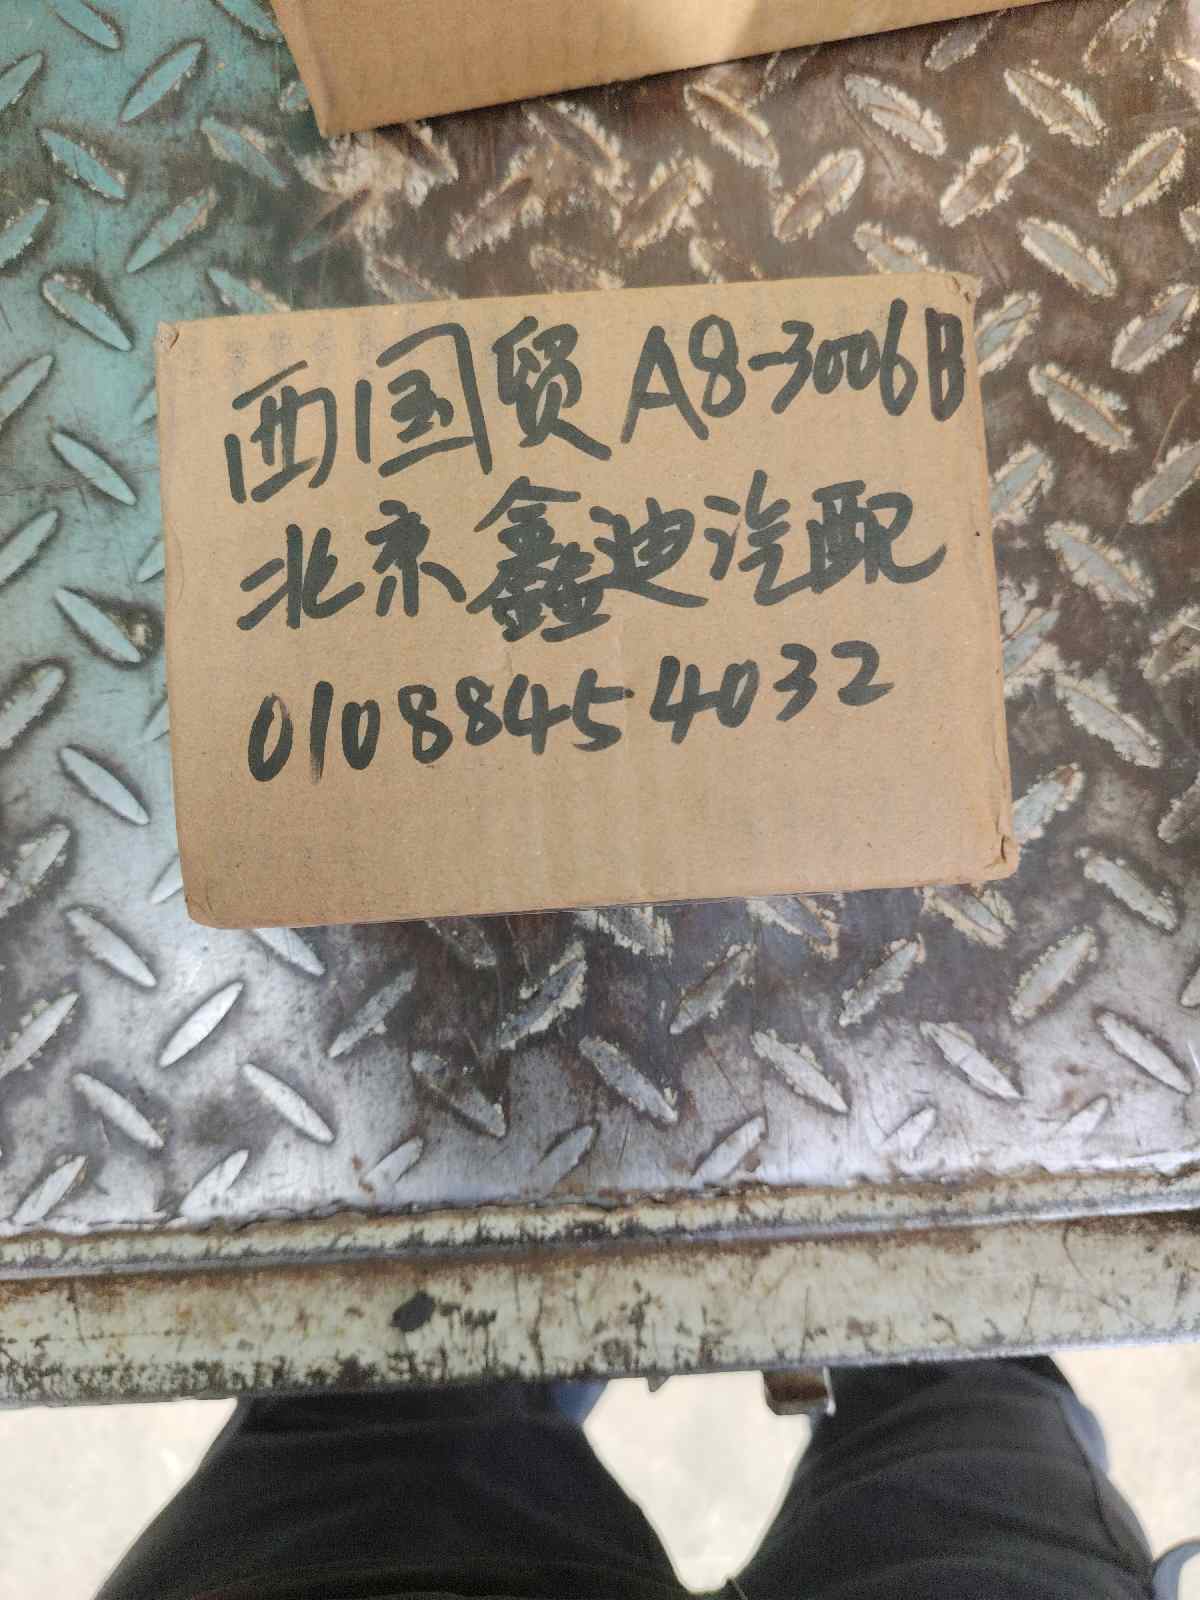 西国贸A8-3006B
北京鑫迪汽配
01088454032